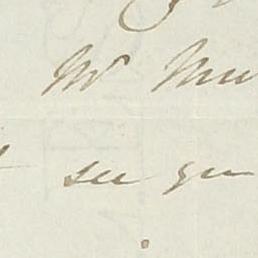 Mr Mu
see you